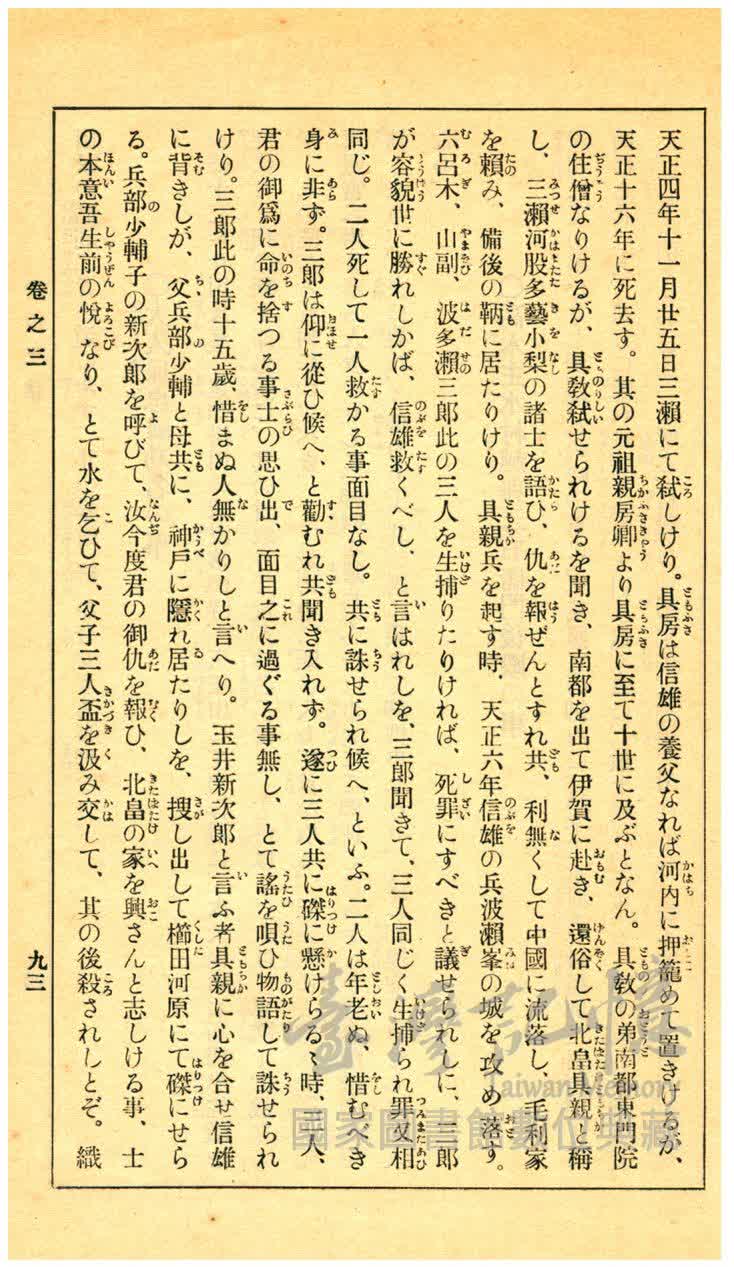 天正四年十一月廿五日三瀨にて弑しけり。具房は信雄の養父なれば河内に押籠めて置きけるが、
天正十六年に死去す。其の元祖親房卿より具房に至て十世に及ぶとなん。具敎の弟南都東門院
の住僧なりけるが、具敎弑せられけるを聞き、南都を出て伊賀に赴き、還俗して北畠具親と稱
し、三瀨河股多藝小梨の諸士を語ひ、仇を報ぜんとすれ共、利無くして中國に流落し、毛利家
を賴み、備後の鞆に居たりけり。具親兵を起す時、天正六年信雄の兵波瀨峯の城を攻め落す。
六呂木、山副、波多瀨三郎此の三人を生捕りたりければ、死罪にすべきと議せられしに、三郎
が容貌世に勝れしかば、信雄救くべし、と言はれしを、三郎聞きて、三人同じく生捕られ罪又相
同じ。二人死して一人救かる事面目なし。共に誅せられ候へ、といふ。二人は年老ぬ、惜むべき
身に非ず。三郎は仰に從ひ候へ、と勸むれ共聞き入れず。遂に三人共に磔に懸けらるゝ時、三人、
君の御爲に命を捨つる事士の思ひ出、面目之に過ぐる事無し、とて謠を唄ひ物語して誅せられ
けり。三郎此の時十五歲、惜まぬ人無かりしと言へり。玉井新次郎と言ふ者具親に心を合せ信雄
に背きしが、父兵部少輔と母共に、神戶に隱れ居たりしを、搜し出して櫛田河原にて磔にせら
る。兵部少輔子の新次郎を呼びて、汝今度君の御仇を報ひ、北畠の家を興さんと志しける事、士
の本意吾生前の悅なり、とて水を乞ひて、父子三人盃を汲み交して、其の後殺されしとぞ。織
卷之三
九三
臺灣記憶
Taiwan Memory
國家圖書館數位典藏